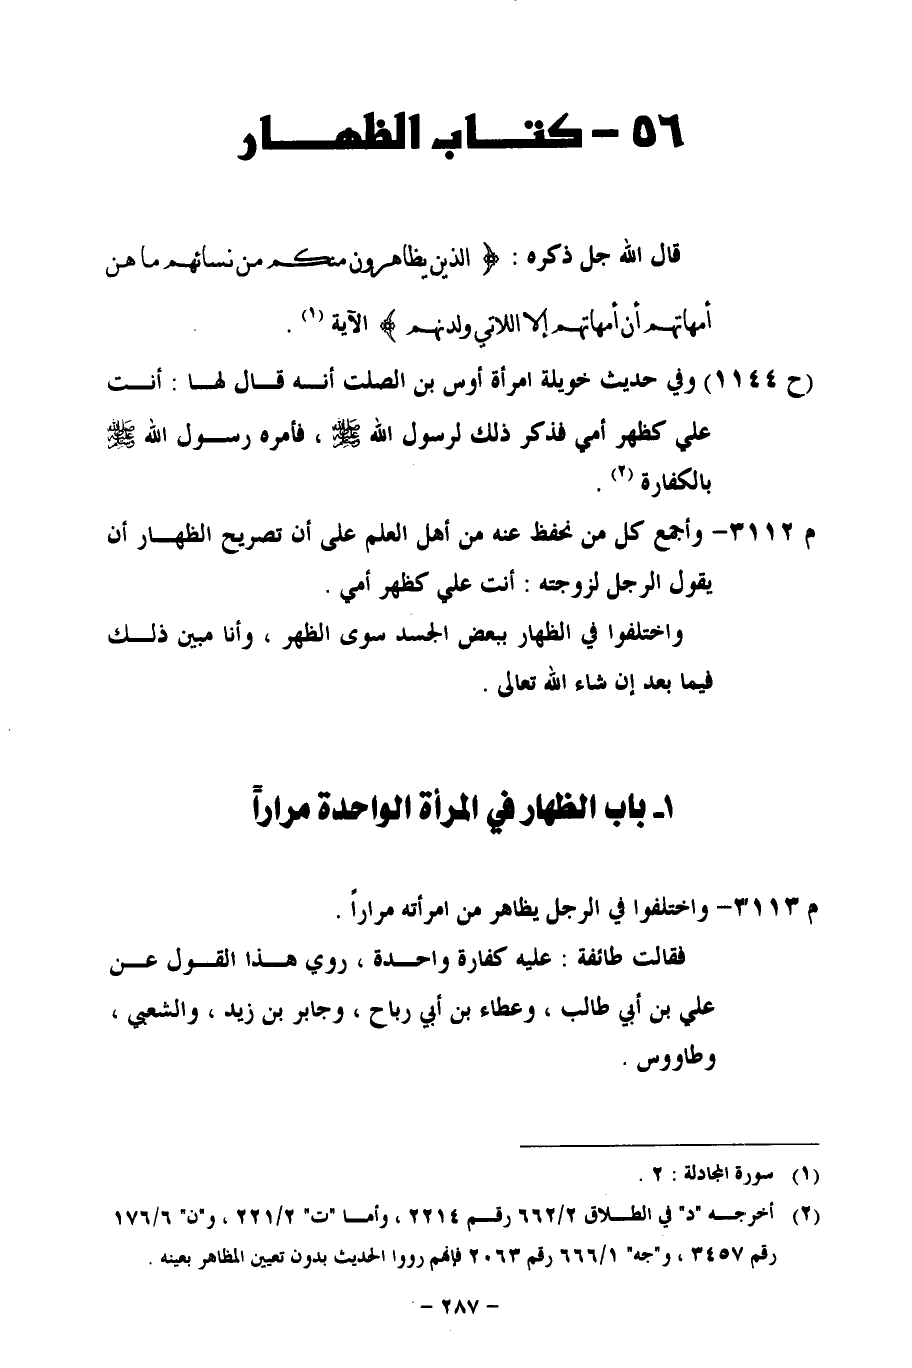 ٥٦ - كتـــاب الظهــــار
قال الله جل ذكره : ﴿ الذين يظاهرون منكم من نسائهم ما هن
أمهاتهم أن أمهاتهم إلا اللائي ولدنهم ﴾ الآية (١) .
(ح ١١٤٤) وفي حديث خويلة امرأة أوس بن الصلت أنــه قــال لهــا : أنــت
علي كظهر أمي فذكر ذلك لرسول الله ﷺ ، فأمره رســول الله ﷺ
بالكفارة (٢) .
م ٣١١٢- وأجمع كل من نحفظ عنه من أهل العلم على أن تصريح الظهــار أن
يقول الرجل لزوجته : أنت علي كظهر أمي .
واختلفوا في الظهار ببعض الجسد سوى الظهر ، وأنا مبين ذلــك
فيما بعد إن شاء الله تعالى .
١ـ باب الظهار في المرأة الواحدة مراراً
م ٣١١٣- واختلفوا في الرجل يظاهر من امرأته مراراً .
فقالت طائفة : عليه كفارة واحــدة ، روي هــذا القــول عــن
علي بن أبي طالب ، وعطاء بن أبي رباح ، وجابر بن زيد ، والشعبي ،
وطاووس .
(١) سورة المجادلة : ٢ .
(٢) أخرجــه "د" في الطــلاق ٦٦٢/٢ رقــم ٢٢١٤ ، وأمــا "ت" ٢٢١/٢ ، و"ن" ١٧٦/٦
رقم ٣٤٥٧ ، و"جه" ٦٦٦/١ رقم ٢٠٦٣ فإنهم رووا الحديث بدون تعيين المظاهر بعينه .
- ٢٨٧ -